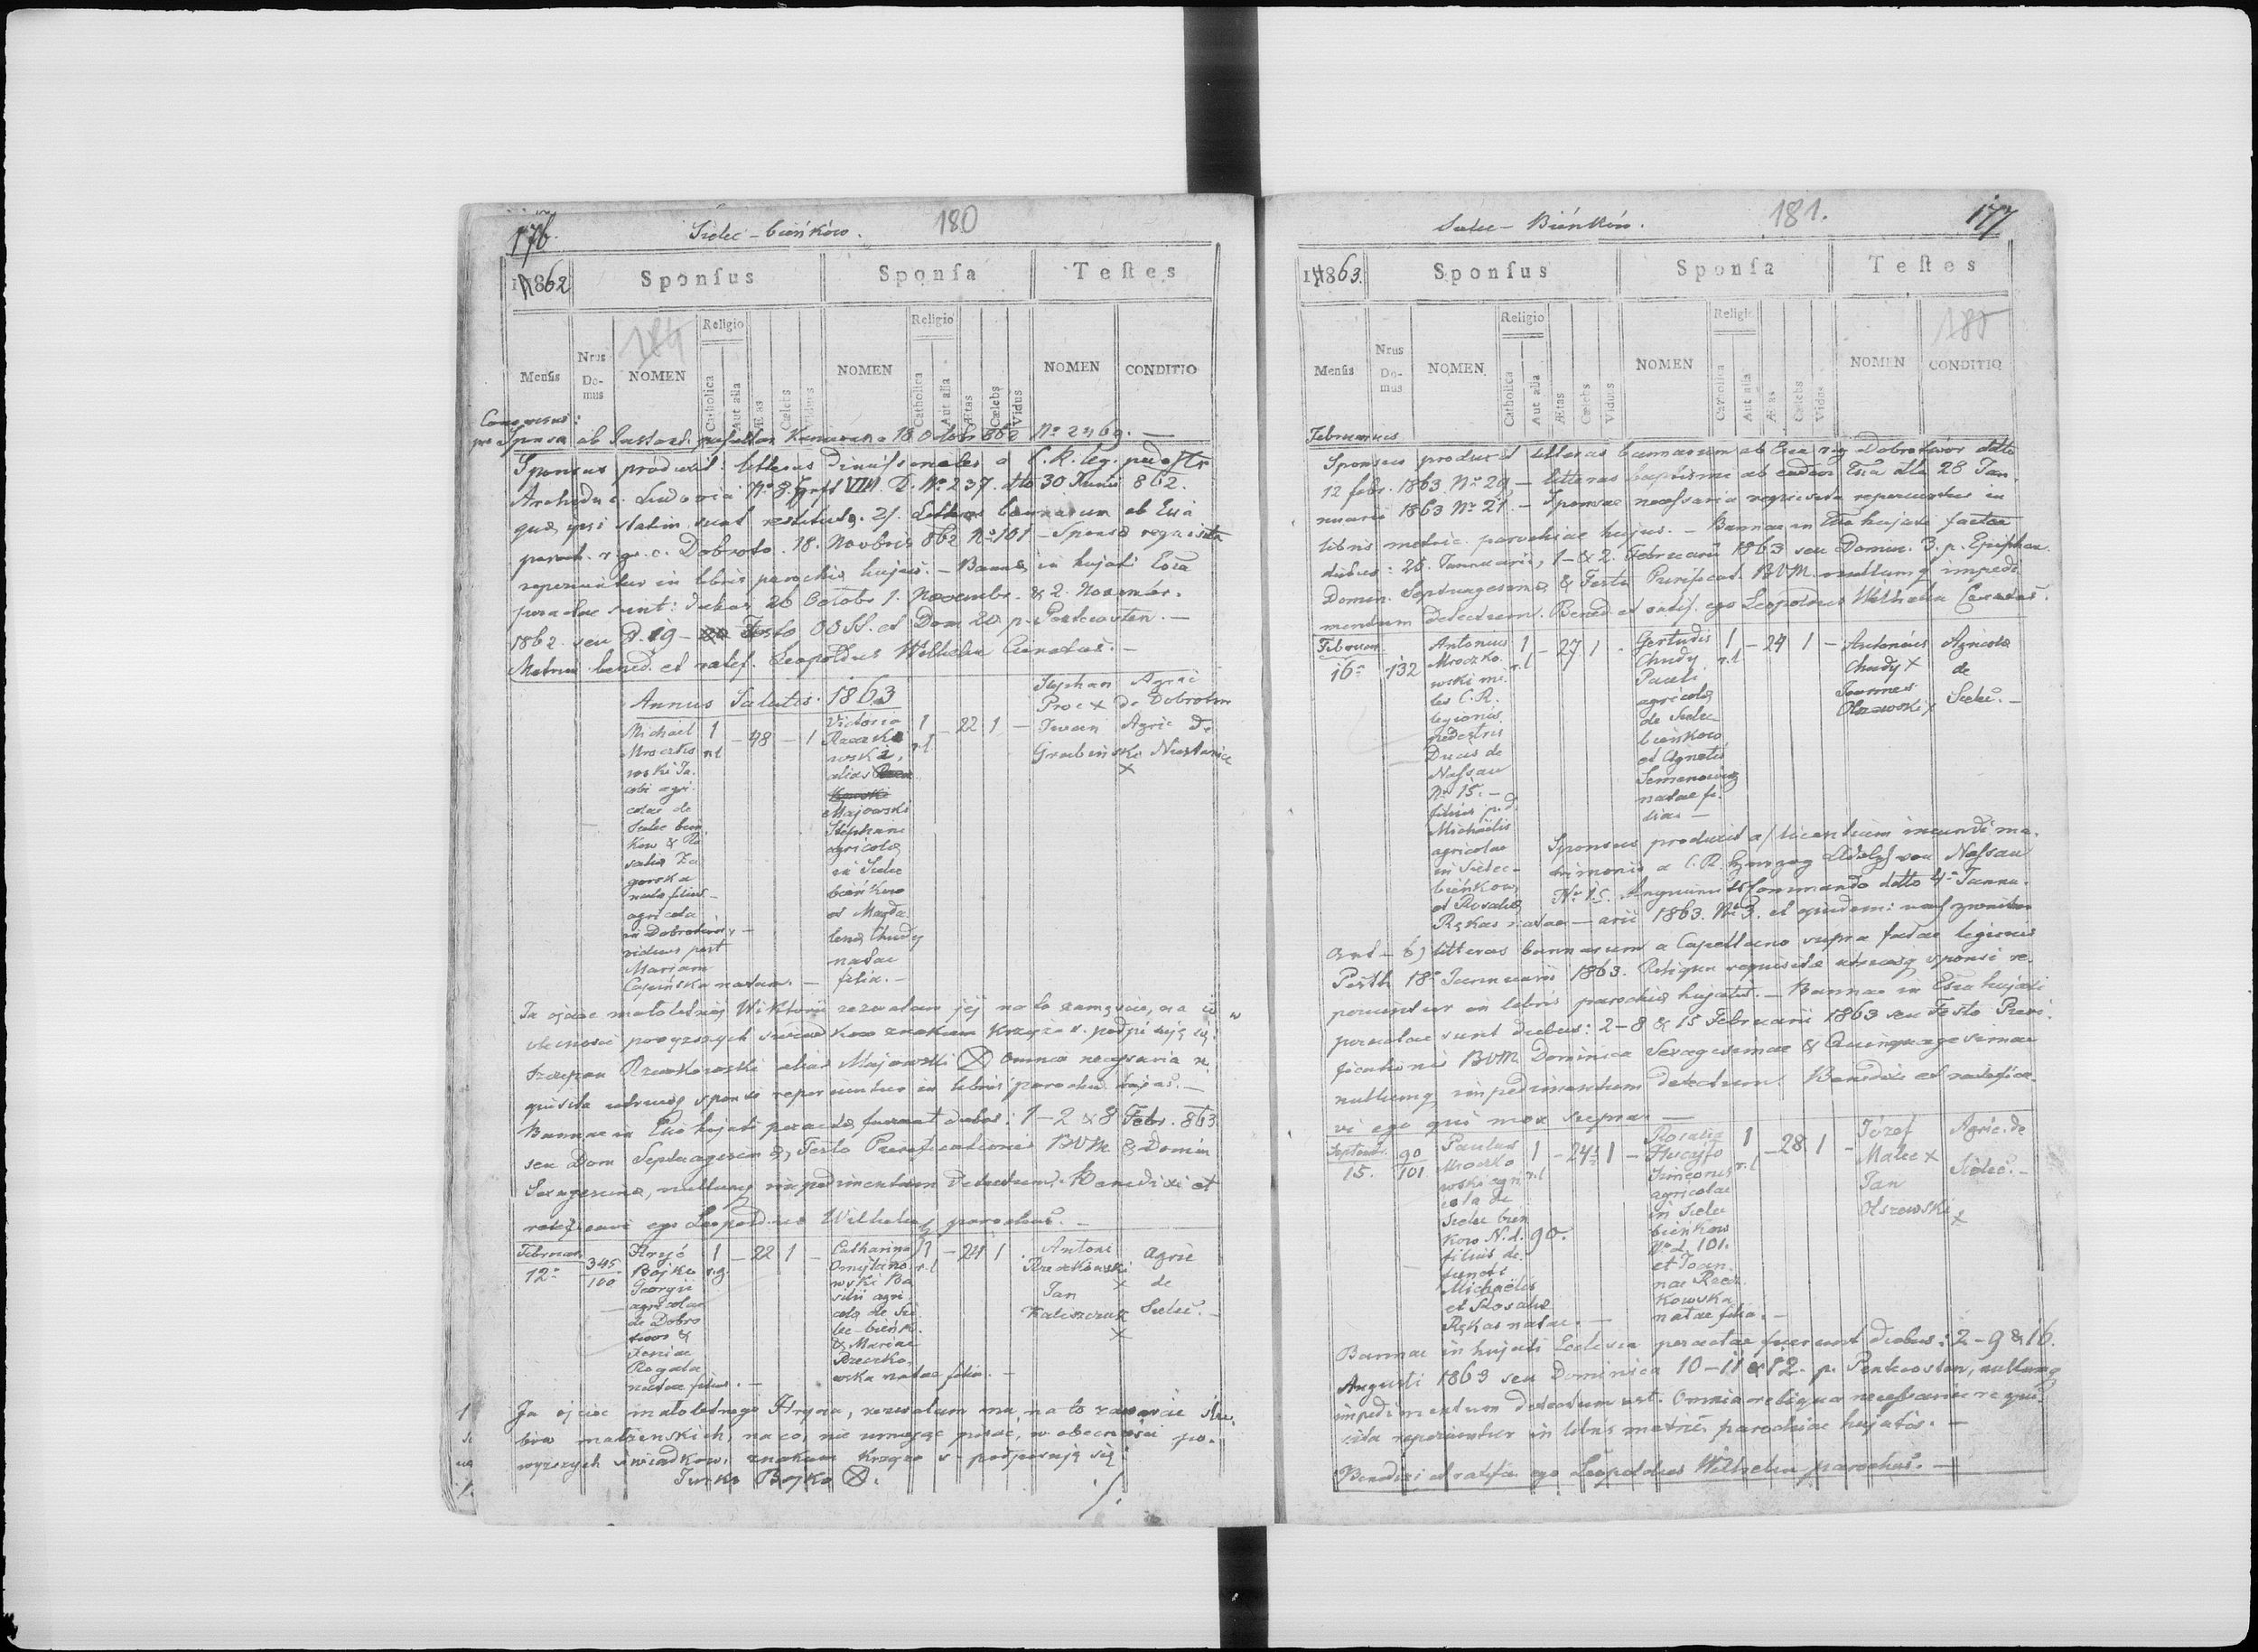 176.
Sielec-bieńków.
180
1862
Sponsus
Sponsa
Testes
184
Mensis
Nrus Do-mus
NOMEN
Religio
Catholica
Aut alia
Ætas
Cœlebs
Viduus
NOMEN
Religio
Catholica
Aut alia
Ætas
Cœlebs
Vidua
NOMEN
CONDITIO
Sponsus produxit: litteras a C.R. leg.
No 237. dto 30 Junii 862.
quæ ipsi statim sunt restitutæ. 2/. Litteras bannorum ab
Dobrotw. 18. Novbris 862 No 101 – Sponsæ requisita
reperiuntur in libris parochiæ hujus. – Bannæ in hujati
peractae sunt: diebus 26 Octobr 1. Novembr. & 2. Novembr.
1862 seu D. 19 – Festo OO SS. et Dom 20 p. Pentecosten. –
bened. et ratif. Leopoldus Wilhelm Curatus. –
Annus Salutis 1863
Stephan
Proc x
Agric
de Dobrotwor
Michael
Mroczko
wski Ja
cobi agri
colae de
Sielec bien
kow & Ro
salia Za
gorska
nata filius –
agricola
in Dobrotwor, –
viduus post
Mariam
natam. –
1
r.l
– 48 – 1
Victoria
Raczko
wska,
alias
Majowski
Stephani
agricolæ
in Sielec
bieńkow
et Magda
lenæ Chudy
natae
filia. –
1
r.l
– 22 1 –
Iwan
Grabiński
x
Agric de
Ja ojciec małoletniej Wiktorii zezwalam jej na to zamęście, a w
obecności powyższych świadków znakiem krzyża s. podpisuję się:
Szczepan Rzeczkowski alias Majowski ⊗ Omnia necessaria re
quisita utriusq sponsi reperiuntur in libris parochiæ hujus. –
Bannae in hujati peractæ fuerunt diebus: 1 – 2 & 8 Febr. 863
seu Dom Septuagesimæ, Festo Purificationis BVM & Domin
Sexagesimæ, nullumq impedimentum detectum. Benedixi et
ratificavi ego Leopoldus Wilhelm parochus. –
Februar
12a
345
100
Hryć
Bojko
Georgii
agricolae
de Dobro
twor &
Xeniae
Rogala
natae filius. –
1
r.g.
– 22 1 –
Catharina
Omytano
wski Ba
silii agri
colæ de Sie
lec-bieńk.
& Mariae
Rzeczko
wska natae filia. –
1
r.l
– 24 1
Antoni
Rzeczkowski
x
Jan
Kaliszczuk
x
Agric
de
Sielec. –
Ja ojciec małoletniego Hrycia, zezwalam mu na to zawarcie ślu
bów małżeńskich, na co, nie umiejąc pisać, w obecności po
wyższych świadków, znakiem krzyża s. podpisuję się:
Jurko Bojko ⊗.
Sielec – Bieńków.
181.
177
1863.
Sponsus
Sponsa
Testes
185
Mensis
Nrus Do-mus
NOMEN
Religio
Catholica
Aut alia
Ætas
Cœlebs
Viduus
NOMEN
Religio
Catholica
Aut alia
Ætas
Cœlebs
Vidua
NOMEN
CONDITIO
Februarius
Sponsus produxit litteras bannorum ab Dobrotwor ddto
12 febr. 1863 No 29 – litteras baptismi ab eadem dta 28 Jan
nuarii 1863 No 21. – Sponsae necessaria requisita reperiuntur in
libris metric. parochiae hujus. – Bannae in hujati factae
diebus: 25. Januarii, 1 – & 2. Februarii 1863 seu Domin. 3. p. Epiphan.
Domin. Septuagesimæ & Festo Purificat. BVM. nullumq impedi
mentum detectum. Bened. et ratif. ego Leopoldus Wilhelm Curatus.
Februar
16a
132
Antonius
Mroczko
wski mi
les C.R.
legionis
pedestris
Ducis de
Nassau
No 15. –
filius p.d.
Michaëlis
agricolae
in Sielec-
bieńkow,
et Rosaliæ
Rękas natae –
1
r.l
– 27 1 –
Gertrudis
Chudy
Pauli
agricolæ
de Sielec
bieńkow
et Agnetis
Semenowicz
natae fi
lia. –
1
r.l
– 24 1 –
Antonius
Chudy x
Joannes
Olszewski x
Agricolæ
de
Sielec. –
Sponsus produxit a/ licentiam ineundi ma
trimonii a C.R. Herzog Adolf von Nassau
No 15. Commando ddto 4a Janu
arii 1863. No 3. et quidem:
Art – b) litteras bannorum a Capellano supra fatae legionis
Pesth 18a Januarii 1863. Reliqua requisita utriusq sponsi re
periuntur in libris parochiæ hujatis. – Bannae in hujati
peractae sunt diebus: 2 – 8 & 15 Februarii 1863 seu Festo Puri
ficationis BVM Dominica Sexagesimae & Quinquagesimae
nullumq impedimentum detectum. Benedixi et ratifica
vi ego qui mox supra –
Septemb.
15.
90
101
Paulus
Mroczko
wski agri
cola de
Sielec bień
kow N.d. 90.
filius de
functi
Michaëlis
et Rosaliæ
Rękas natae. –
1
r.l
– 24 1 –
Rosalia
Simeonis
agricolae
in Sielec
bieńkow
No d. 101.
et Joan
nae Racz
kowska
natae filia. –
1
r.l
– 28 1 –
Józef
Malec x
Jan
Olszewski
x
Agric. de
Sielec. –
Bannae in hujati Ecclesia peractae fuerunt diebus: 2 – 9 & 16.
Augusti 1863 seu Dominica 10 – 11 & 12 p. Pentecosten, nullumq
impedimentum detectum est. Omnia reliqua necessaria requi
sita reperiuntur in libris metric. parochiae hujatis. –
Benedixi et ratifa. ego Leopoldus Wilhelm parochus. –